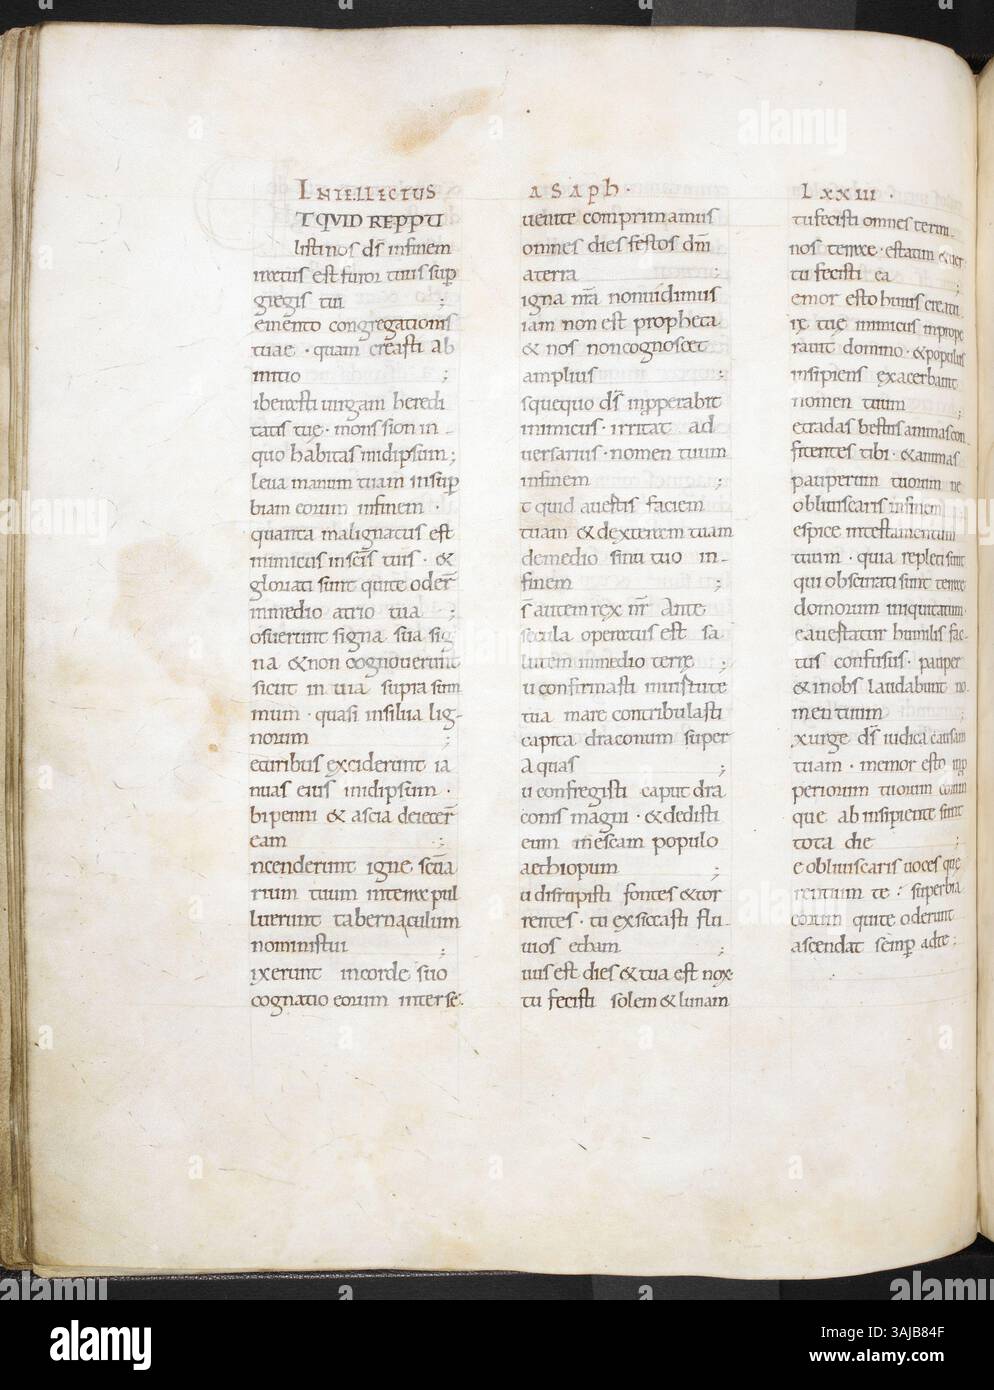 INTELLECTUS
TQVID REPPTU
listi nos ds infinem
iratus est furor tuus sup
gregis tui ;
emento congregationis
tuae · quam creasti ab
initio ;
iberasti uirgam heredi
tatis tuę · mons sion in
quo habitas inidipsum ;
leua manum tuam insup
biam eorum infinem ·
quanta malignatus est
inimicus inscis tuis · &
gloriati sunt qui te oder
inmedio atrio tuo ;
osuerunt signa sua sig
na & non cognouerunt
sicut in uia supra sum
mum · quasi insilua lig-
norum ;
ecuribus exciderunt ia
nuas eius inidipsum ·
bipenni & ascia deiecer
eam ;
ncenderunt igne scua
rium tuum interra pol
luerunt tabernaculum
noministui ;
ixerunt incorde suo
cognatio eorum inter se ·
ASAPh ·
uenite comprimamus
omnes dies festos dni
a terra ;
igna nra nonuidimus
iam non est propheta
& nos noncognoscet
amplius ;
squequo ds inproperabit
inimicus · irritat ad
uersarius · nomen tuum
infinem ;
t quid auertis faciem
tuam & dexteram tuam
demedio sinu tuo in-
finem ;
s autem rex nr ante
secula operatus est sa
lutem inmedio terrę ;
u confirmasti inuirtute
tua mare contribulasti
capita draconum super
aquas ;
u confregisti caput dra
conis magni · & dedisti
eum inescam populo
aethiopum ;
u disrupisti fontes & tor
rentes · tu exsiccasti flu
uios etham ;
uus est dies & tua est nox
tu fecisti solem & lunam
LXXIII ·
tu fecisti omnes termi
nos terrae · estatem & uer
tu fecisti ea ;
emor esto huius creatu
rę tuę inimicus inprope
rauit domino · & populus
insipiens exacerbauit
nomen tuum ;
etradas bestiis animas con
fitentes tibi · & animas
pauperum tuorum ne
obliuiscaris infinem
espice intestamentum
tuum · quia repleti sunt
qui obscurati sunt terrae
domorum iniquitatum ·
e auertatur humilis fac
tus confusus · pauper
& inobs laudabunt no
men tuum ;
xurge ds iudica causam
tuam · memor esto inp
periorum tuorum eorum
que ab insipiente sunt
tota die ;
e obliuiscaris uoces que
rentium te : superbia
eorum qui te oderunt
ascendat semp ad te ;
alamy
alamy
alamy
alamy
3AJB84F
www.alamy.com